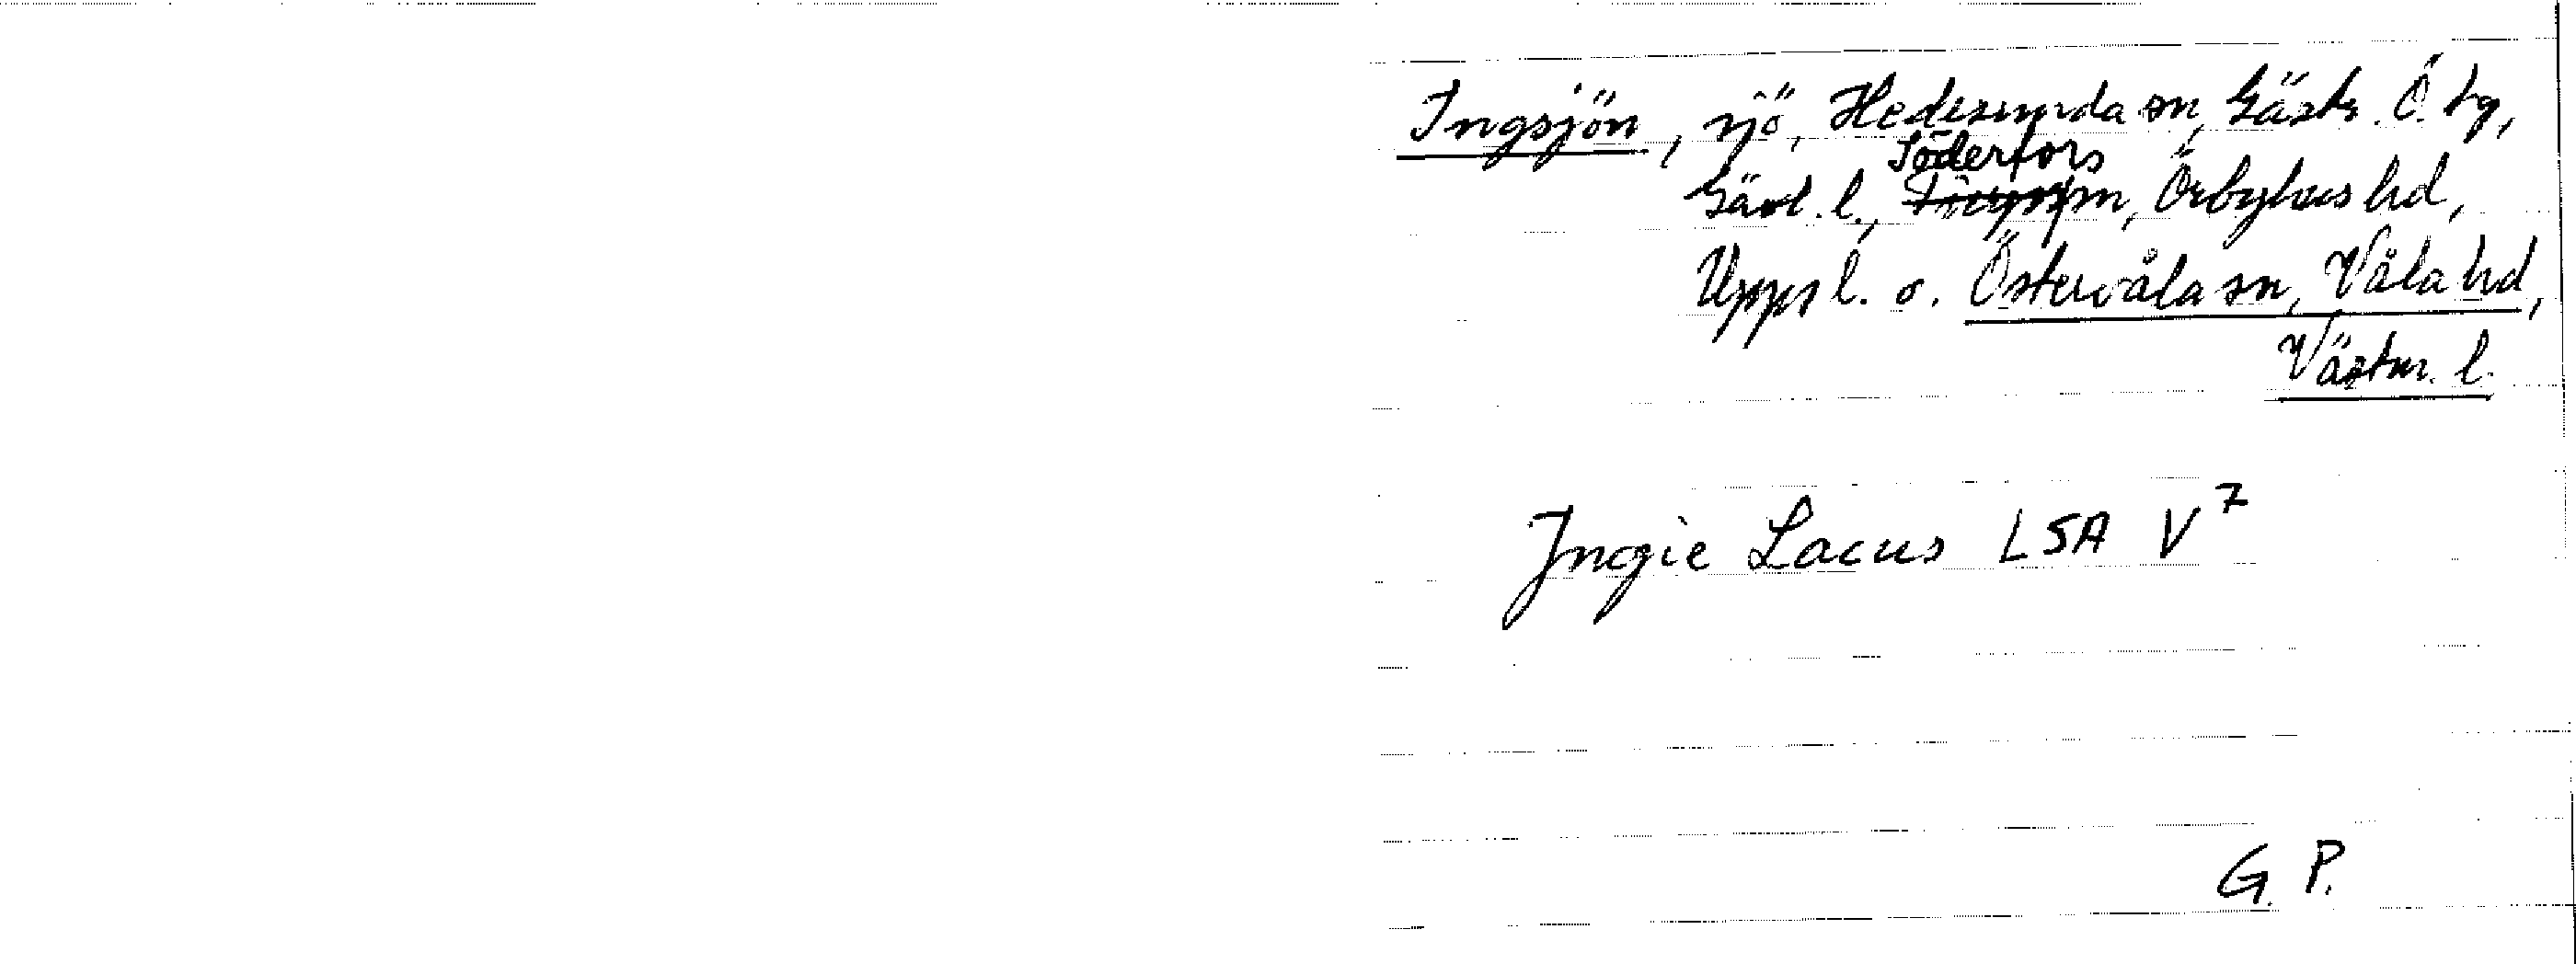 Ingsjön, sjö, Hedesunda sn, Gästr. Ö. tg,
Söderfors
Gävl. l., sn, Örbyhus hd,
Upps l. o. Östervåla sn, Våla hd,
Västm. l.
Jngie Lacus LSA V⁷
G. P.